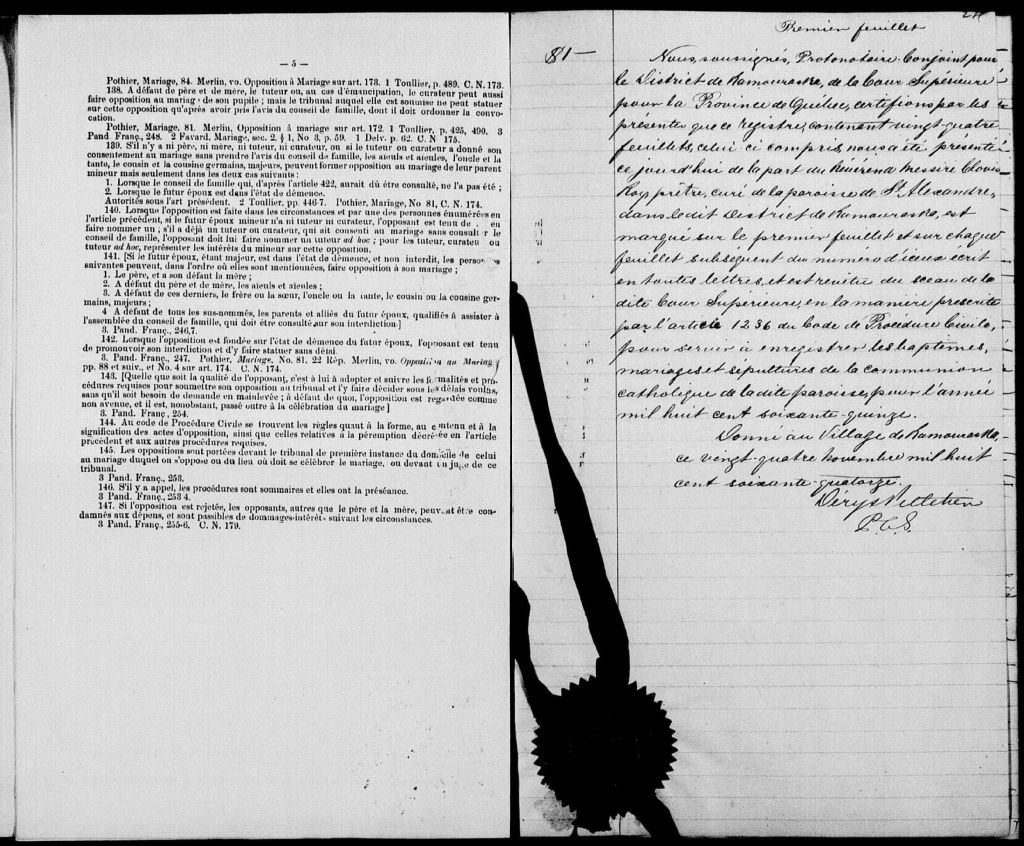 — 5 —
Pothier, Mariage, 84. Merlin, vo. Opposition à Mariage sur art. 173. 1 Toullier, p. 489. C. N. 173.
138. A défaut de père et de mère, le tuteur ou, au cas d'émancipation, le curateur peut aussi
faire opposition au mariage de son pupile ; mais le tribunal auquel elle est soumise ne peut statuer
sur cette opposition qu'après avoir pris l'avis du conseil de famille, dont il doit ordonner la convo-
cation.
Pothier, Mariage, 81. Merlin, Opposition à mariage sur art. 172. 1 Toullier, p. 425, 490. 3
Pand Franç., 248. 2 Favard, Mariage, sec. 2, § 1, No 3, p. 59. 1 Delv. p. 62. C. N 175.
139. S'il n'y a ni père, ni mère, ni tuteur, ni curateur, ou si le tuteur ou curateur a donné son
consentement au mariage sans prendre l'avis du conseil de famille, les aieuls et aieules, l'oncle et la
tante, le cousin et la cousine germains, majeurs, peuvent former opposition au mariage de leur parent
mineur mais seulement dans les deux cas suivants :
1. Lorsque le conseil de famille qui, d'après l'article 422, aurait dû être consulté, ne l'a pas été ;
2. Lorsque le futur époux est dans l'état de démence.
Autorités sous l'art précédent. 2 Toullier, pp. 446-7. Pothier, Mariage, No 81, C. N. 174.
140. Lorsque l'opposition est faite dans les circonstances et par une des personnes énumérées en
l'article précédent, si le futur époux mineur n'a ni tuteur ni curateur, l'opposant est tenu de en
faire nommer un ; s'il a déjà un tuteur ou curateur, qui ait consenti au mariage sans consulter le
conseil de famille, l'opposant doit lui faire nommer un tuteur ad hoc ; pour les tuteur, curateur ou
tuteur ad hoc, représenter les intérêts du mineur sur cette opposition.
141. [Si le futur époux, étant majeur, est dans l'état de démence, et non interdit, les personnes
suivantes peuvent, dans l'ordre où elles sont mentionnées, faire opposition à son mariage ;
1. Le père, et a son défaut la mère ;
2. A défaut du père et de mère, les aieuls et aïeules ;
3. A défaut de ces derniers, le frère ou la sœur, l'oncle ou la tante, le cousin ou la cousine ger-
mains, majeurs ;
4 A défaut de tous les sus-nommés, les parents et alliés du futur époux, qualifiés à assister à
l'assemblée du conseil de famille, qui doit être consulté sur son interdiction.]
3. Pand. Franç., 246,7.
142. Lorsque l'opposition est fondée sur l'état de démence du futur époux, l'opposant est tenu
de promouvoir son interdiction et d'y faire statuer sans délai.
3. Pand. Franç., 247. Pothier, Mariage, No. 81. 22 Rép. Merlin, vo. Opposition au Mariag
pp. 88 et suiv., et No. 4 sur art. 174. C. N. 174.
143. [Quelle que soit la qualité de l'opposant, c'est à lui à adopter et suivre les formalités et pro-
cédures requises pour soumettre son opposition au tribunal et l'y faire décider sous les délais voulus,
sans qu'il soit besoin de demande en mainlevée ; à défaut de quoi, l'opposition est regardée comme
non avenue, et il est, nonobstant, passé outre à la célébration du mariage]
3. Pand. Franç., 254.
144. Au code de Procédure Civile se trouvent les règles quant à la forme, au contenu et à la
signification des actes d'opposition, ainsi que celles relatives à la péremption décrétée en l'article
précédent et aux autres procédures requises.
145. Les oppositions sont portées devant le tribunal de première instance du domicile de celui
au mariage duquel on s'oppose ou du lieu où doit se célébrer le mariage, ou devant un juge de ce
tribunal.
3 Pand. Franç., 253.
146. S'il y a appel, les procédures sont sommaires et elles ont la préséance.
3 Pand. Franç., 253 4.
147. Si l'opposition est rejetée, les opposants, autres que le père et la mère, peuvent être con-
damnés aux dépens, et sont passibles de dommages-intérêts suivant les circonstances.
3 Pand. Franç., 255-6. C. N. 179.
Premier feuillet
81 —
Nous, soussignés, Protonotaire Conjoint pour
le District de Kamouraska, de la Cour Supérieure
pour la Province de Québec, certifions par les
présentes que ce registre, contenant vingt-quatre
feuillets, celui ci compris, nous a été présenté
ce jourd'hui de la part du Révérend Messire Clovis
Roy, prêtre, curé de la paroisse de St Alexandre,
dans le dit District de Kamouraska, est
marqué sur le premier feuillet et sur chaque
feuillet subséquent du numéro d'iceux écrit
en toutes lettres, et est revêtu du sceau de la
dite Cour Supérieure, en la manière prescrite
par l'article 1236 du Code de Procédure Civile,
pour servir à enregistrer les baptêmes,
mariages et sépultures de la communion
catholique de la dite paroisse, pour l'année
mil huit cent soixante-quinze.
Donné au Village de Kamouraska,
ce vingt-quatre novembre mil huit
cent soixante-quatorze.
P. C. S.